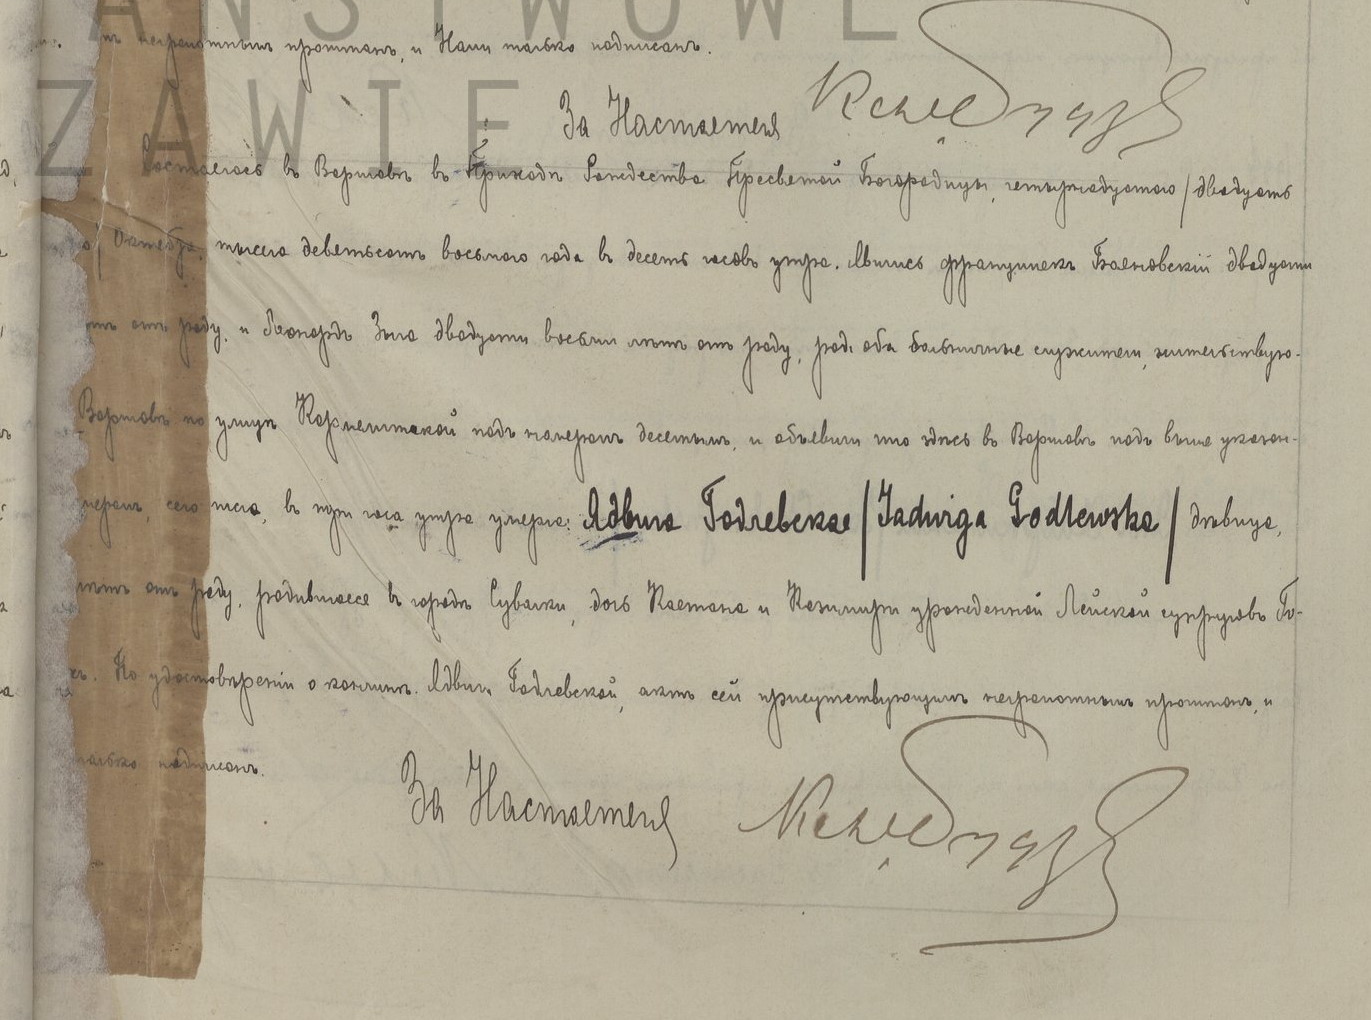 ANSTWOWE
неграмотнымъ прочитанъ, и Нами только подписанъ.
ZAWIE
За Настоятеля
Состоялось въ Варшавѣ въ Приходѣ Рождества Пресвятой Богородицы, четырнадцатаго / двадцать
Октября, тысяча девятьсотъ восьмого года въ десять часовъ утра. Явились Францишекъ двадцати
отъ роду, и Леонардъ Зыга двадцати восьми лѣтъ отъ роду, оба больничные служители, жительствую-
Варшавѣ по улицѣ Кармелитской подъ номеромъ десятымъ, и объявили что здѣсь въ Варшавѣ подъ выше указан-
сего числа, въ три часа утра умерла: Ядвига Годлевская / Jadwiga Godlewska / дѣвица,
лѣтъ отъ роду, родившаяся въ городѣ Сувалки, дочь Каетана и Казимиры урожденной Лейской супруговъ Го-
По удостовѣреніи о кончинѣ Ядвиги Годлевской, актъ сей присутствующимъ неграмотнымъ прочитанъ, и
только подписанъ.
За Настоятеля